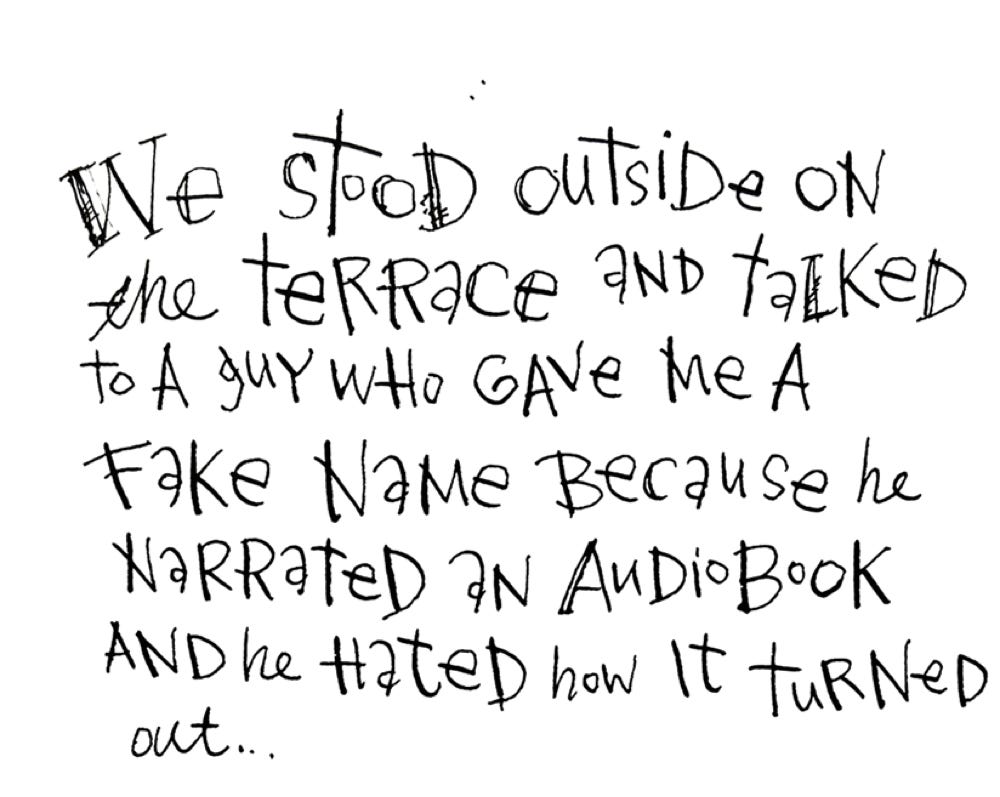 We stood outside on
the terrace and talked
to A guy who Gave Me A
Fake Name Because he
Narrated an AudioBook
AND he Hated how It turned
out...